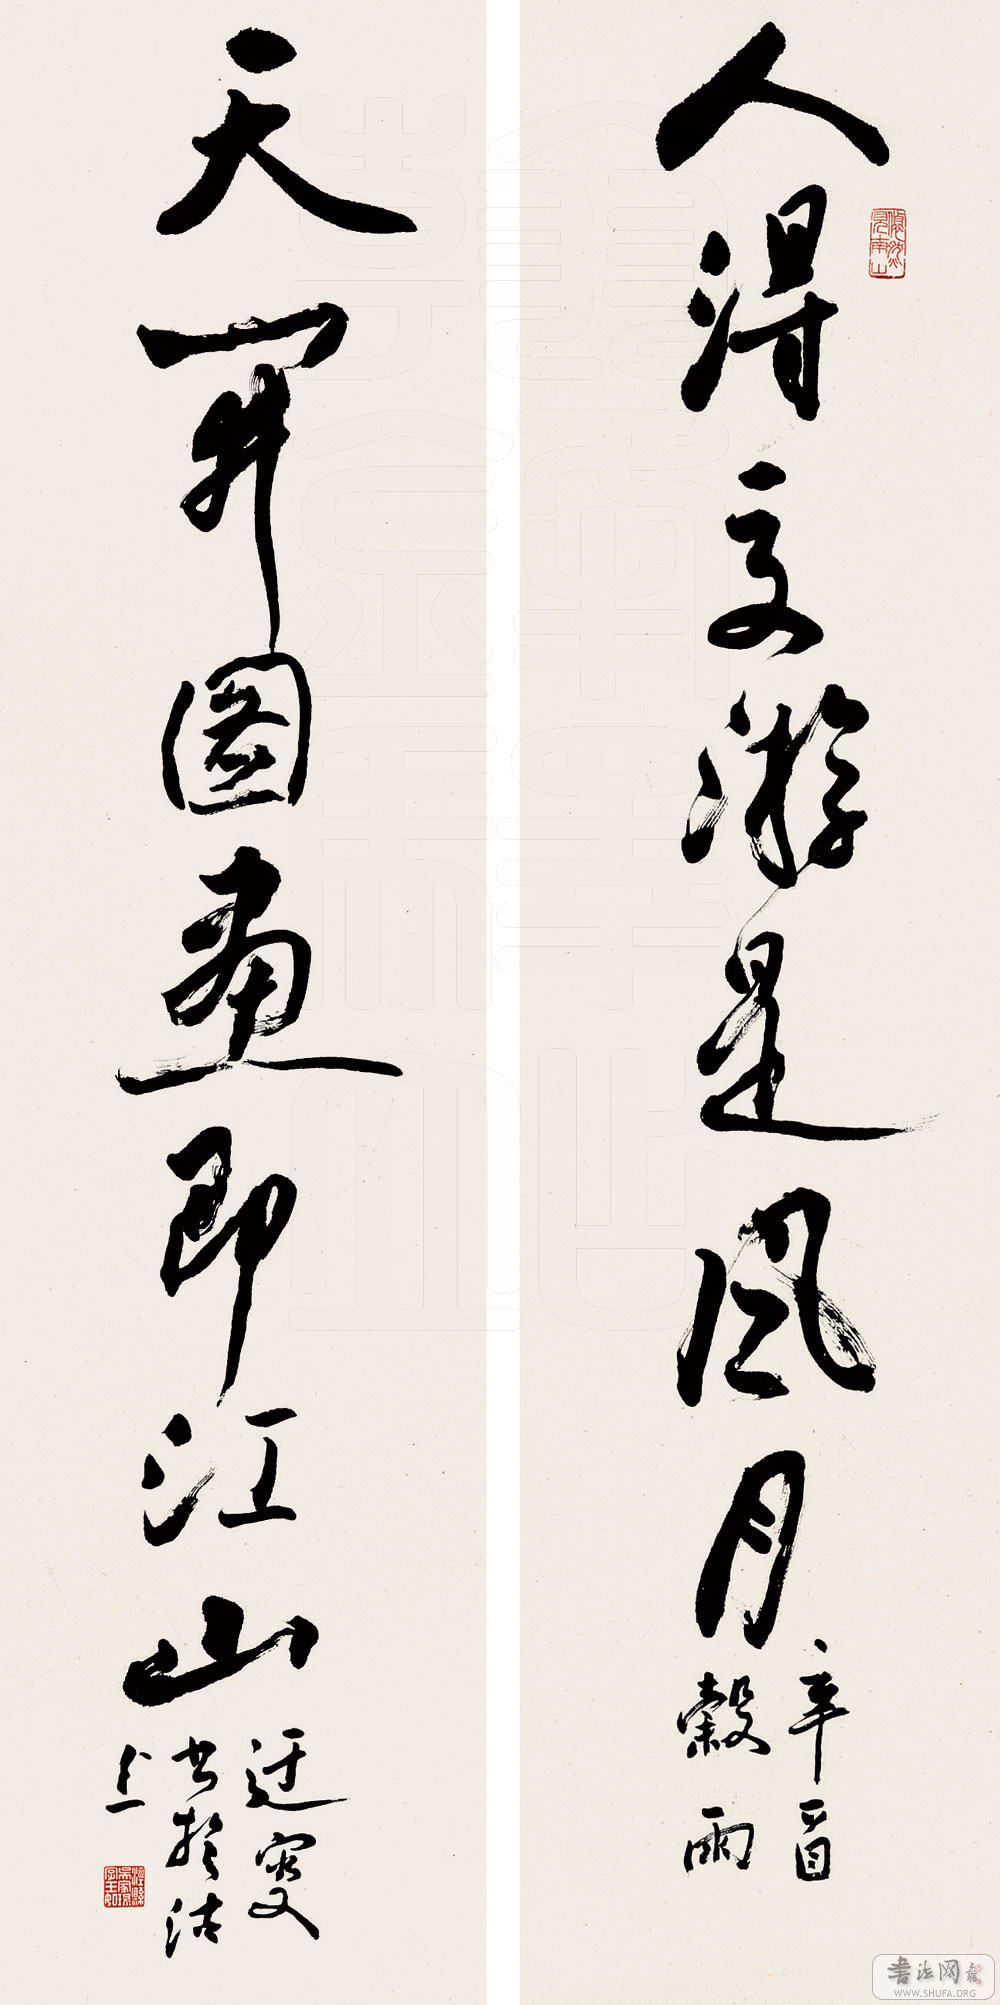 人得交游是风月
辛酉
穀雨
天开图画即江山
迂叟
书於沽
上
悠然
见南山
书法网
WWW.SHUFA.ORG